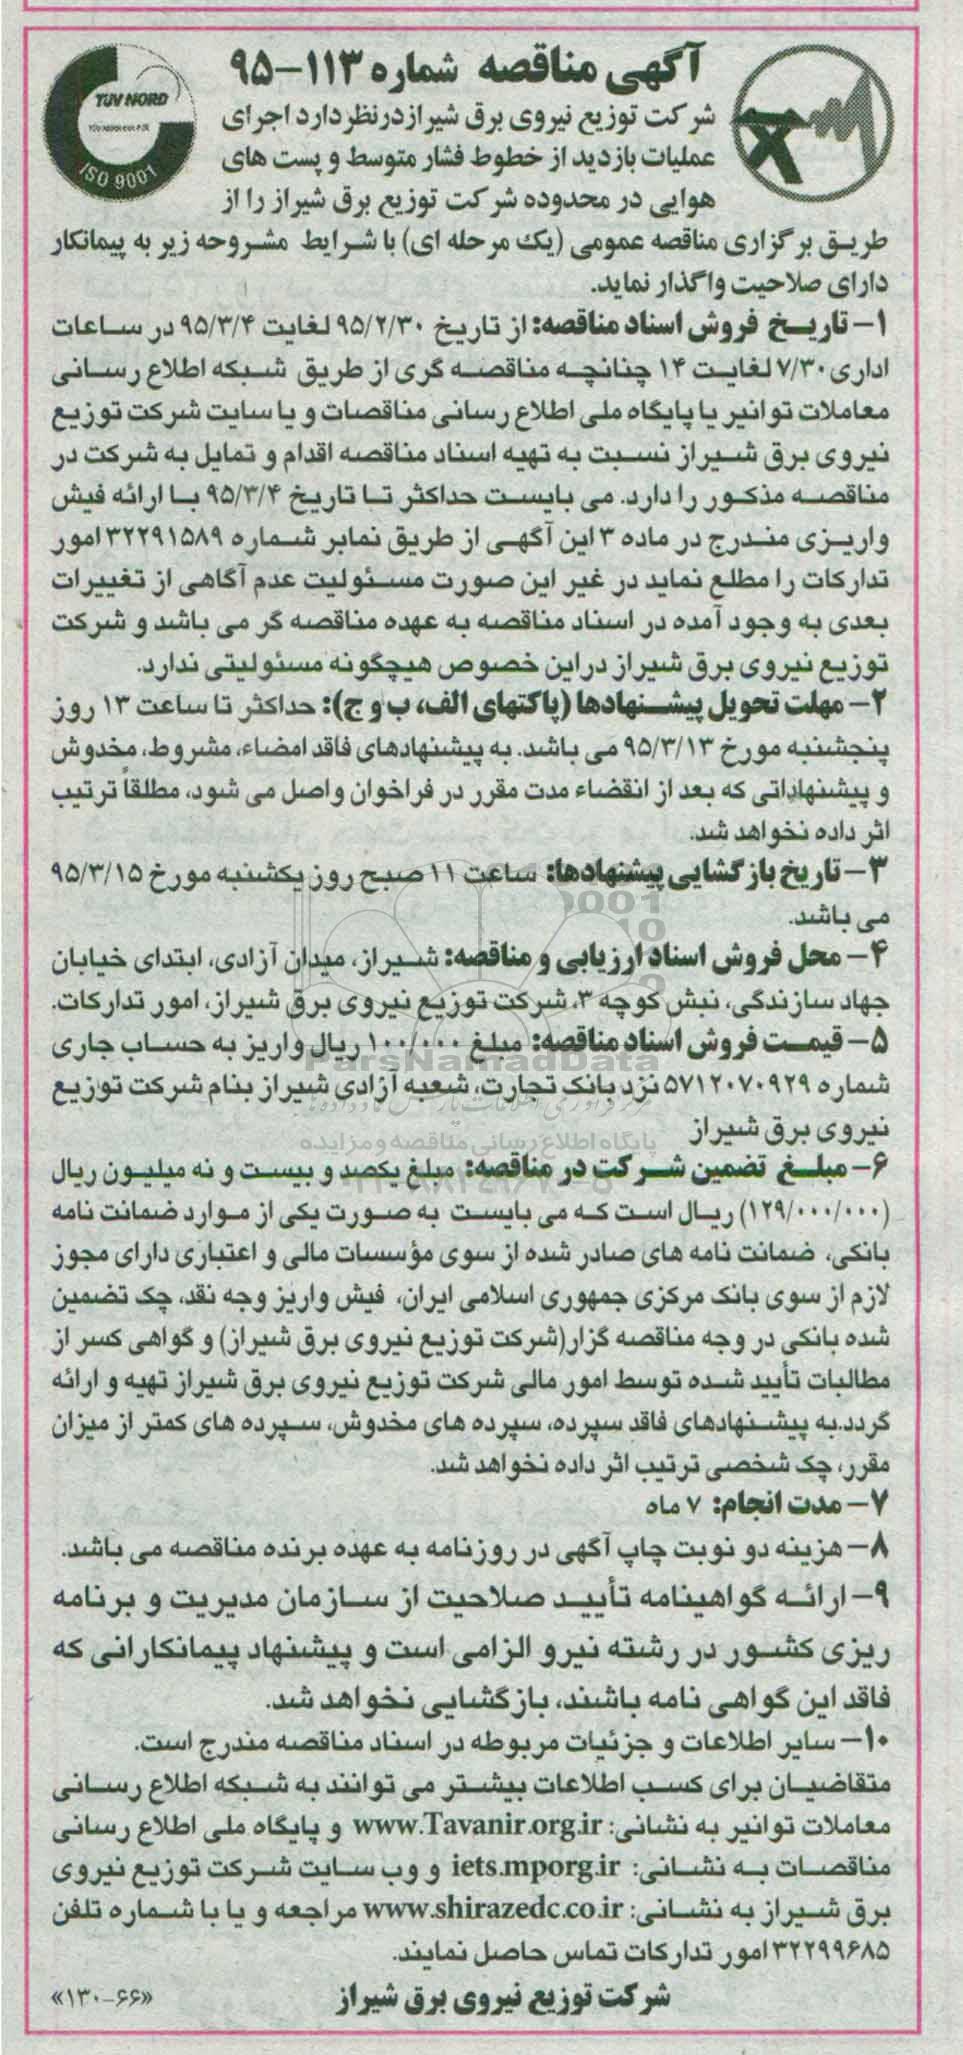 آگهی مناقصه شماره ۱۱۳-۹۵
TÜV NORD
ISO 9001
شرکت توزیع نیروی برق شیرازدرنظردارد اجرای
عملیات بازدید از خطوط فشار متوسط و پست های
هوایی در محدوده شرکت توزیع برق شیراز را از
طریق برگزاری مناقصه عمومی (یک مرحله ای) با شرایط مشروحه زیر به پیمانکار
دارای صلاحیت واگذار نماید.
۱- تاریخ فروش اسناد مناقصه: از تاریخ ۹۵/۲/۳۰ لغایت ۹۵/۳/۴ در ساعات
اداری ۷/۳۰ لغایت ۱۴ چنانچه مناقصه گری از طریق شبکه اطلاع رسانی
معاملات توانیر یا پایگاه ملی اطلاع رسانی مناقصات و یا سایت شرکت توزیع
نیروی برق شیراز نسبت به تهیه اسناد مناقصه اقدام و تمایل به شرکت در
مناقصه مذکور را دارد. می بایست حداکثر تا تاریخ ۹۵/۳/۴ با ارائه فیش
واریزی مندرج در ماده ۳ این آگهی از طریق نمابر شماره ۳۲۲۹۱۵۸۹ امور
تدارکات را مطلع نماید در غیر این صورت مسئولیت عدم آگاهی از تغییرات
بعدی به وجود آمده در اسناد مناقصه به عهده مناقصه گر می باشد و شرکت
توزیع نیروی برق شیراز دراین خصوص هیچگونه مسئولیتی ندارد.
۲- مهلت تحویل پیشنهادها (پاکتهای الف، ب و ج): حداکثر تا ساعت ۱۳ روز
پنجشنبه مورخ ۹۵/۳/۱۳ می باشد. به پیشنهادهای فاقد امضاء، مشروط، مخدوش
و پیشنهاداتی که بعد از انقضاء مدت مقرر در فراخوان واصل می شود، مطلقاً ترتیب
اثر داده نخواهد شد.
۳- تاریخ بازگشایی پیشنهادها: ساعت ۱۱ صبح روز یکشنبه مورخ ۹۵/۳/۱۵
می باشد.
۴- محل فروش اسناد ارزیابی و مناقصه: شیراز، میدان آزادی، ابتدای خیابان
جهاد سازندگی، نبش کوچه ۳، شرکت توزیع نیروی برق شیراز، امور تدارکات.
۵- قیمت فروش اسناد مناقصه: مبلغ ۱۰۰/۰۰۰ ریال واریز به حساب جاری
ParsNamadData
شماره ۵۷۱۲۰۷۰۹۲۹ نزد بانک تجارت، شعبه آزادی شیراز بنام شرکت توزیع
نیروی برق شیراز
پایگاه اطلاع رسانی مناقصه و مزایده
۶- مبلغ تضمین شرکت در مناقصه: مبلغ یکصد و بیست و نه میلیون ریال
(۱۲۹/۰۰۰/۰۰۰) ریال است که می بایست به صورت یکی از موارد ضمانت نامه
بانکی، ضمانت نامه های صادر شده از سوی مؤسسات مالی و اعتباری دارای مجوز
لازم از سوی بانک مرکزی جمهوری اسلامی ایران، فیش واریز وجه نقد، چک تضمین
شده بانکی در وجه مناقصه گزار(شرکت توزیع نیروی برق شیراز) و گواهی کسر از
مطالبات تأیید شده توسط امور مالی شرکت توزیع نیروی برق شیراز تهیه و ارائه
گردد.به پیشنهادهای فاقد سپرده، سپرده های مخدوش، سپرده های کمتر از میزان
مقرر، چک شخصی ترتیب اثر داده نخواهد شد.
۷- مدت انجام: ۷ ماه
۸- هزینه دو نوبت چاپ آگهی در روزنامه به عهده برنده مناقصه می باشد.
۹- ارائه گواهینامه تأیید صلاحیت از سازمان مدیریت و برنامه
ریزی کشور در رشته نیرو الزامی است و پیشنهاد پیمانکارانی که
فاقد این گواهی نامه باشند، بازگشایی نخواهد شد.
۱۰- سایر اطلاعات و جزئیات مربوطه در اسناد مناقصه مندرج است.
متقاضیان برای کسب اطلاعات بیشتر می توانند به شبکه اطلاع رسانی
معاملات توانیر به نشانی: www.Tavanir.org.ir و پایگاه ملی اطلاع رسانی
مناقصات به نشانی: iets.mporg.ir و وب سایت شرکت توزیع نیروی
برق شیراز به نشانی: www.shirazedc.co.ir مراجعه و یا با شماره تلفن
۳۲۲۹۹۶۸۵ امور تدارکات تماس حاصل نمایند.
شرکت توزیع نیروی برق شیراز
«۱۳۰-۶۶»